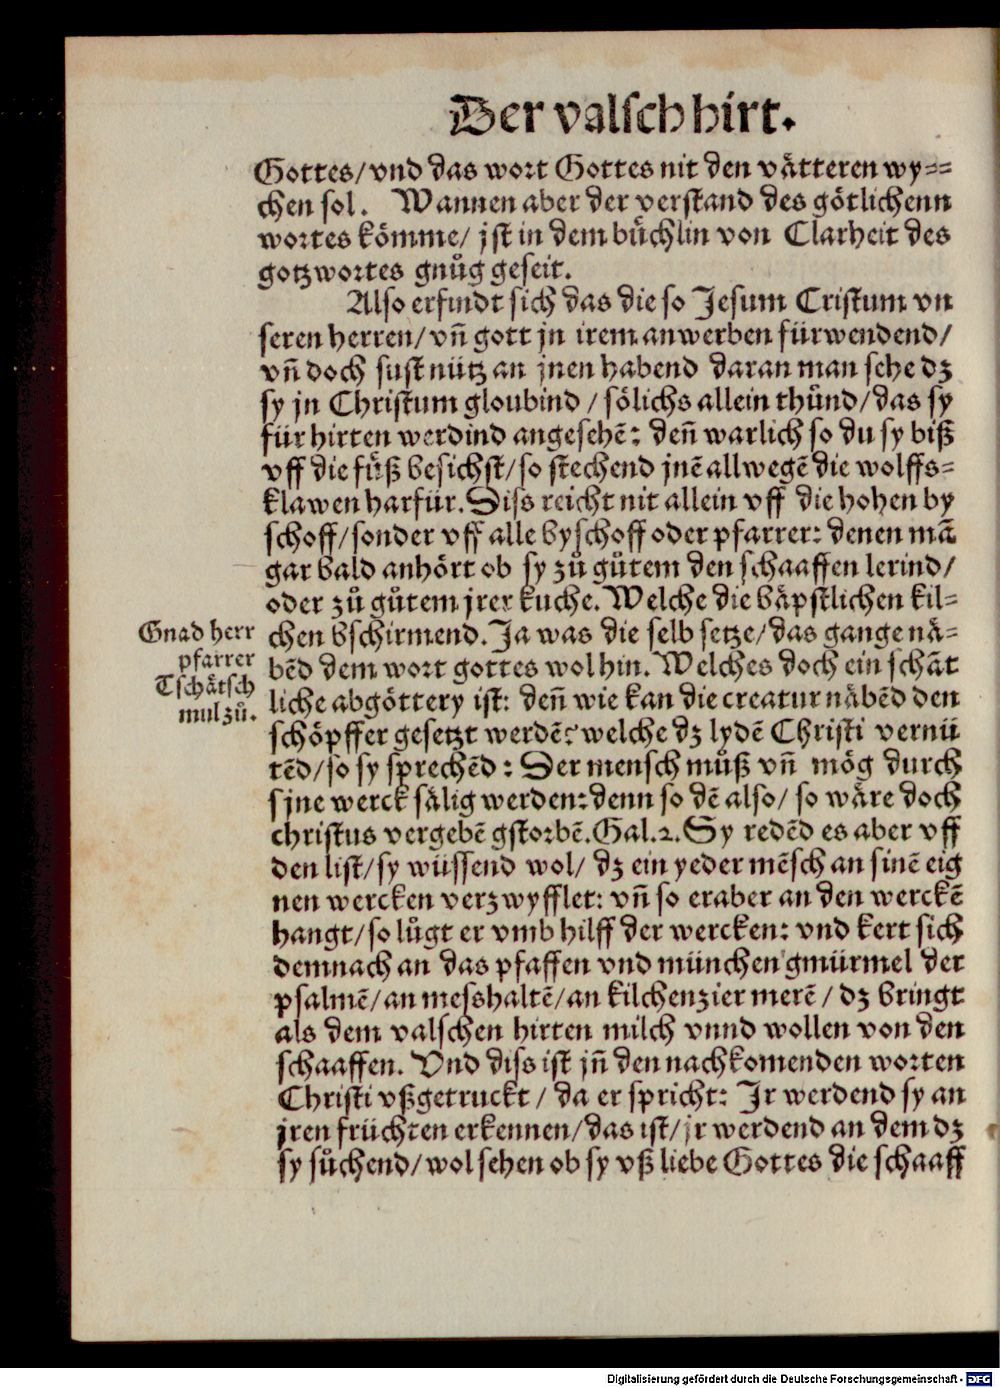 Der valsch hirt.
Gottes/ vnd das wort Gottes nit den vätteren wy⸗
chen sol. Wannen aber der verstand des götlichenn
wortes kömme/ jst in dem büchlin von Clarheit des
gotzwortes gnůg geseit.
Also erfindt sich das die so Jesum Cristum vn
seren herren/ vñ gott jn irem anwerben fürwendend/
vñ doch sust nütz an jnen habend daran man sehe dz
sy jn Christum gloubind / sölichs allein thůnd/ das sy
für hirten werdind angesehẽ: deñ warlich so du sy biß
vff die füß besichst/ so stechend jnẽ allwegẽ die wolffs⸗
klawen harfür. Diss reicht nit allein vff die hohen by
schoff/ sonder vff alle byschoff oder pfarrer: denen mã
gar bald anhört ob sy zů gůtem den schaaffen lerind/
oder zů gůtem jrer kuche. Welche die bäpstlichen kil⸗
Gnad herr
pfarrer
Tschätsch
mul zů.
chen bschirmend. Ja was die selb setze/ das gange nä⸗
bẽd dem wort gottes wol hin. Welches doch ein schãt
liche abgöttery ist: deñ wie kan die creatur näbẽd den
schöpffer gesetzt werdẽ? welche dz lydẽ Christi vernü
tẽd/ so sy sprechẽd : Der mensch můß vñ mög durch
sjne werck sälig werden: denn so dẽ also/ so wäre doch
christus vergebẽ gstorbẽ. Gal. 2. Sy redẽd es aber vff
den list/ sy wüssend wol/ dz ein yeder mẽsch an sinẽ eig
nen wercken verzwyfflet: vñ so er aber an den werckẽ
hangt/ so lůgt er vmb hilff der wercken: vnd kert sich
demnach an das pfaffen vnd münchen gmürmel der
psalmẽ/ an messhaltẽ/ an kilchenzier merẽ / dz bringt
als dem valschen hirten milch vnnd wollen von den
schaaffen. Vnd diss ist jñ den nachkomenden worten
Christi vßgetruckt / da er spricht: Jr werdend sy an
jren früchten erkennen/ das ist/ jr werdend an dem dz
sy sůchend/ wol sehen ob sy vß liebe Gottes die schaaff
Digitalisierung gefördert durch die Deutsche Forschungsgemeinschaft - DFG